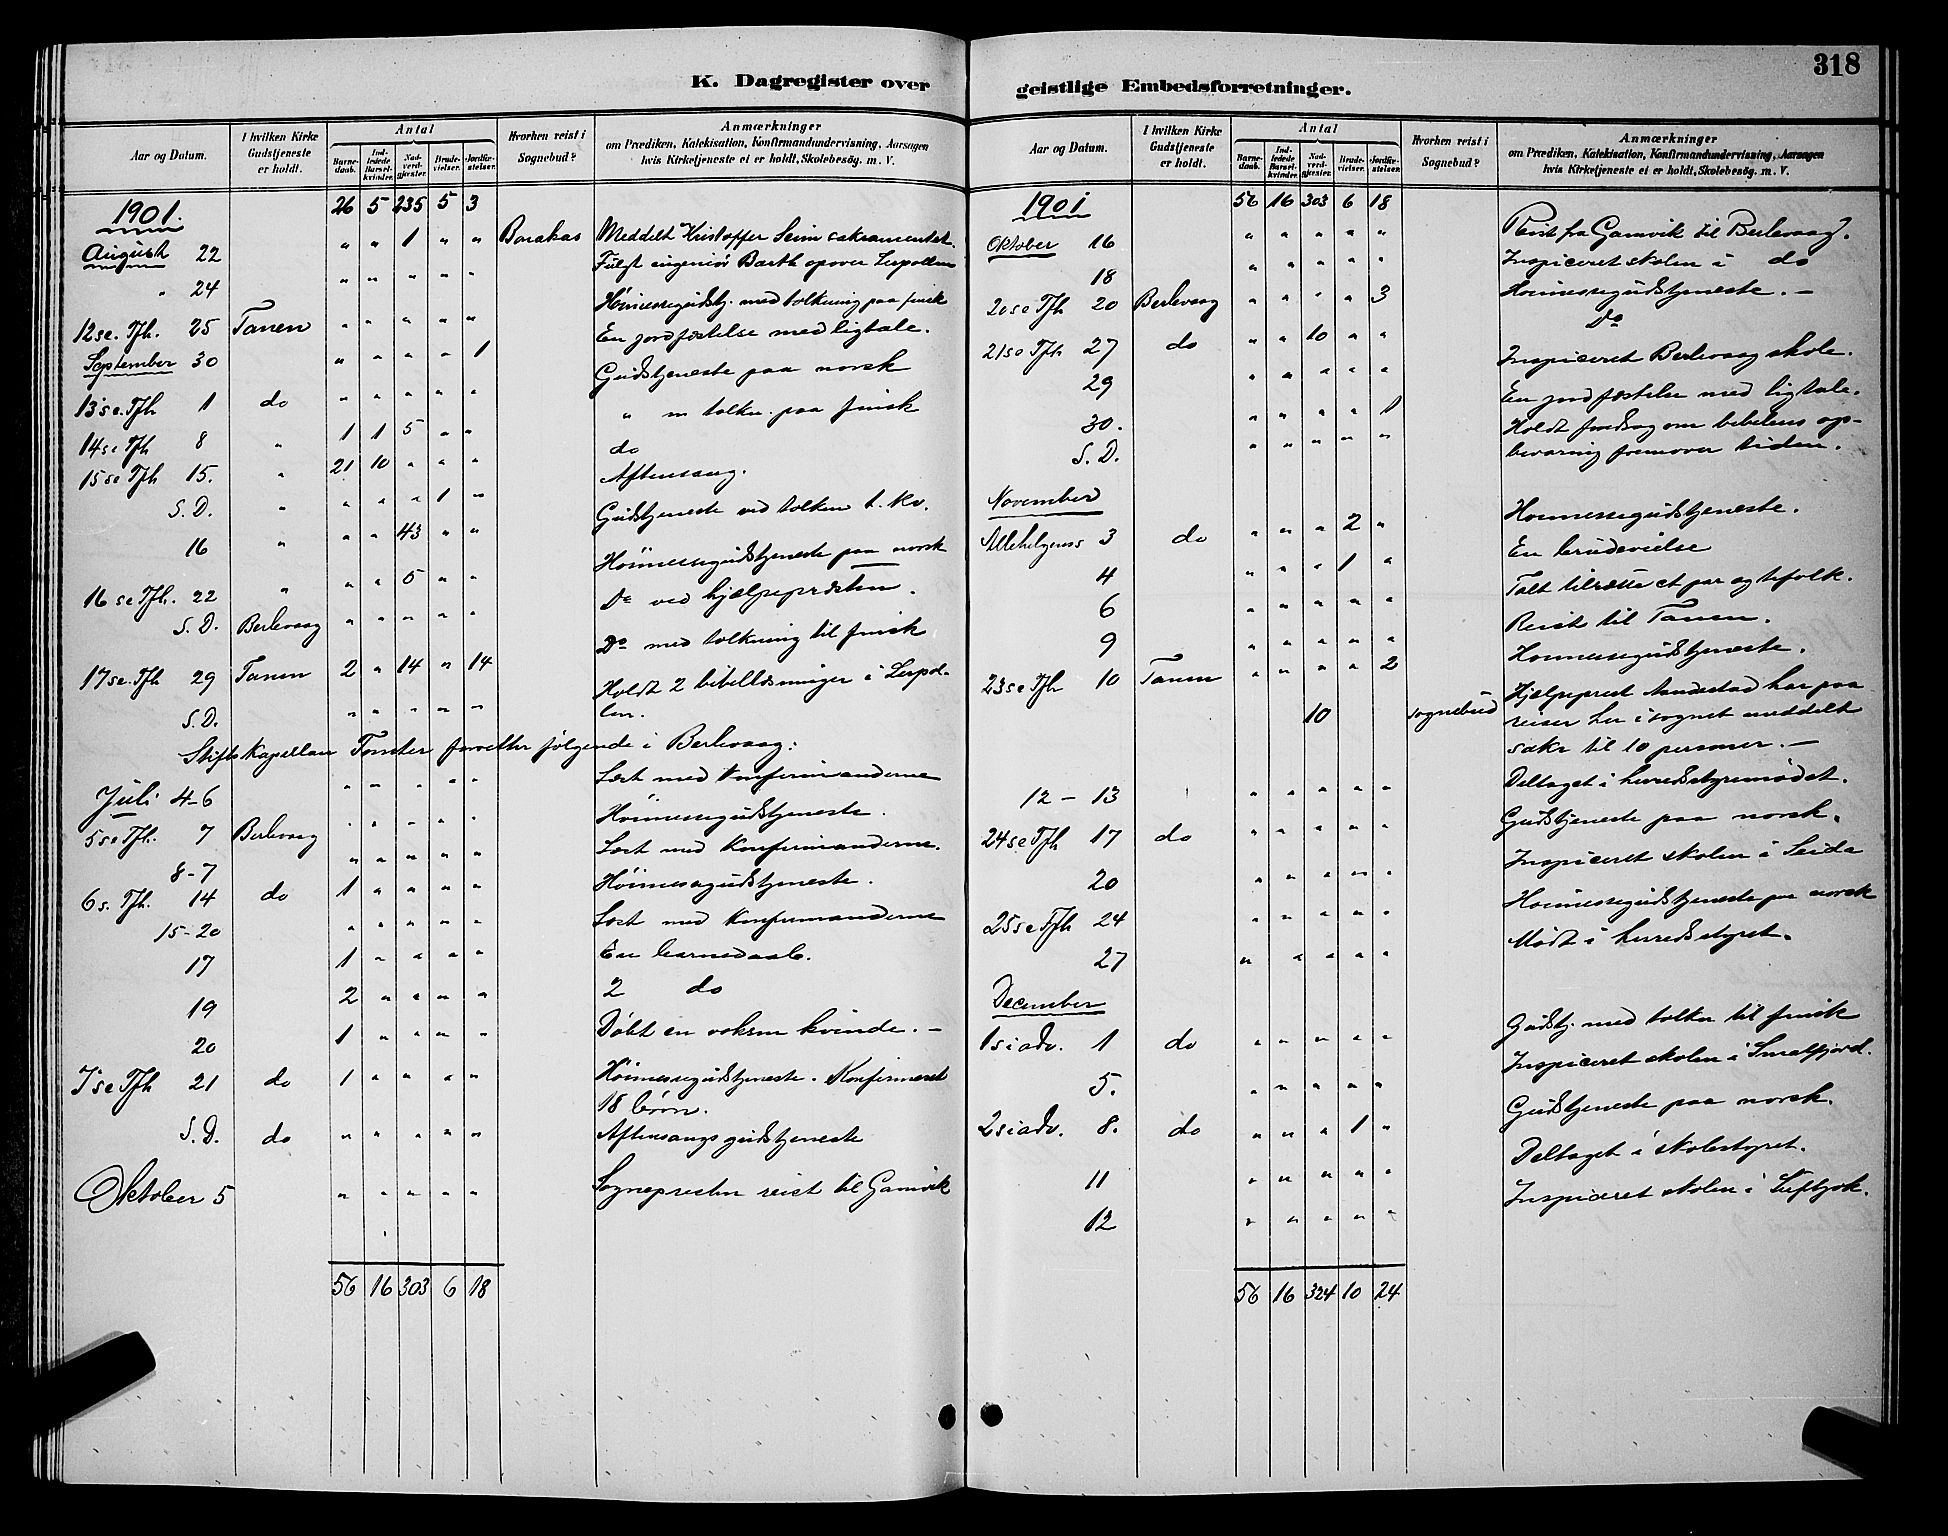 318
K. Dagregister over geistlige Embedsforretninger.
Aar og Datum. I hvilken Kirke Gudstjeneste er holdt. Antal Hvorhen reist i Sognebud? Anmærkninger
om Prædiken, Katekisation, Konfirmandundervisning, Aarsagen
hvis Kirketjeneste ei er holdt, Skolebesög. m. V.
Barnedaab. Indledede Barselkvinder. Nadverdgjester. Brudevielser. Jordfæstelser.
1901. 26 5 235 5 3
August 22 " " 1 " " Meddelt Kristoffer Seim sakramentet.
" 24 " " " " " Fulgt ingeniör Barth opover
12 se. Tfh. 25 Tanen " " " " " Höimessegudstj. med tolkning paa finsk
September 30 " " " " 1 En jordfæstelse med ligtale.
13 se. Tfh 1 do " " " " " Gudstjeneste paa norsk
14 se Tfh 8 " 1 1 5 " " " m tolkn. paa finsk
15 se Tfh 15. " 21 10 " " " do
S. D. " " " " 1 " Aftensang.
16 " " " 43 " " Gudstjeneste ved tolken
16 se Tfh. 22 " " " 5 " " Höimessegudstjeneste paa norsk
S. D. Berlevaag " " " " " Do ved hjælpepresten.
17 se. Tfh 29 Tanen 2 " 14 " 14 Do med tolkning til finsk
S. D. " " " " " Holdt 2 bibellæsninger i Leirpol-
len.
Stiftskapellan forretter følgende i Berlevaag:
Juli 4-6 " " " " " Læst med konfirmanderne
5 se Tfh. 7 Berlevaag " " " " " Höimessegudstjeneste.
8-7 " " " " " Læst med konfirmanderne.
6 s. Tfh. 14 do 1 " " " " Höimessegudstjeneste.
15-20 " " " " " Læst med konfirmanderne
17 1 " " " " En barnedaab.
19 2 " " " " 2 do
20 1 " " " " Döbt en voksen kvinde. -
7 se Tfh 21 do 1 " " " " Höimessegudstjeneste. Konfirmeret
18 börn.
S. D. do " " " " " Aftensangsgudstjeneste
Oktober 5 " " " " " Sognepresten reist til Gamvik
56 16 303 6 18
Aar og Datum. I hvilken Kirke Gudstjeneste er holdt. Antal Hvorhen reist i Sognebud? Anmærkninger
om Prædiken, Katekisation, Konfirmandundervisning, Aarsagen
hvis Kirketjeneste ei er holdt, Skolebesög. m. V.
Barnedaab. Indledede Barselkvinder. Nadverdgjester. Brudevielser. Jordfæstelser.
1901 56 16 303 6 18
Oktober 16 " " " " " Reist fra Gamvik til Berlevaag.
18 " " " " " Inspiceret skolen i do
20 se Tfh 20 Berlevaag " " " " 3 Höimessegudstjeneste. -
21 se Tfh 27 do " " 10 " " Do
29 " " " " " Inspiceret Berlevaag skole.
30. " " " " 1 En jordfæstelse med ligtale.
S. D. " " " " " Holdt foredrag om bibelens op-
bevaring fremover tiden.
November
Allehelgens 3 do " " " 2 " Höimessegudstjeneste.
4 " " " 1 " En brudevielse
6 " " " " " Talt tilrette et par egtefolk.
9 " " " " " Reist til Tanen.
23 se Tfh 10 Tanen " " " " 2 Höimessegudstjeneste.
10 sognebud Hjælpeprest har paa
reiser her i sognet meddelt
sakr til 10 personer. -
12 - 13 " " " " " Deltaget i herredsstyremödet.
24 se Tfh 17 do " " " " " Gudstjeneste paa norsk.
20 " " " " " Inspiceret skolen i Seida
25 se Tfh 24 " " " " " Höimessegudstjeneste paa norsk
27 " " " " " Mödt i herredsstyret.
December
1 s i adv. 1 do " " " " " Gudstj. med tolker til finsk
5. " " " " " Inspiceret skolen i Smalfjord.
2 s i adv. 8. do " " " 1 " Gudstjeneste paa norsk.
11 " " " " " Deltaget i skolestyret.
12 " " " " " Inspiceret skolen i Luftjok.
56 16 324 10 24